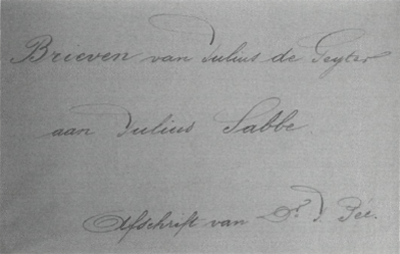 Brieven van Julius de Geyter
aan Julius Sabbe.
Afschrift van Dr. J. Pée.